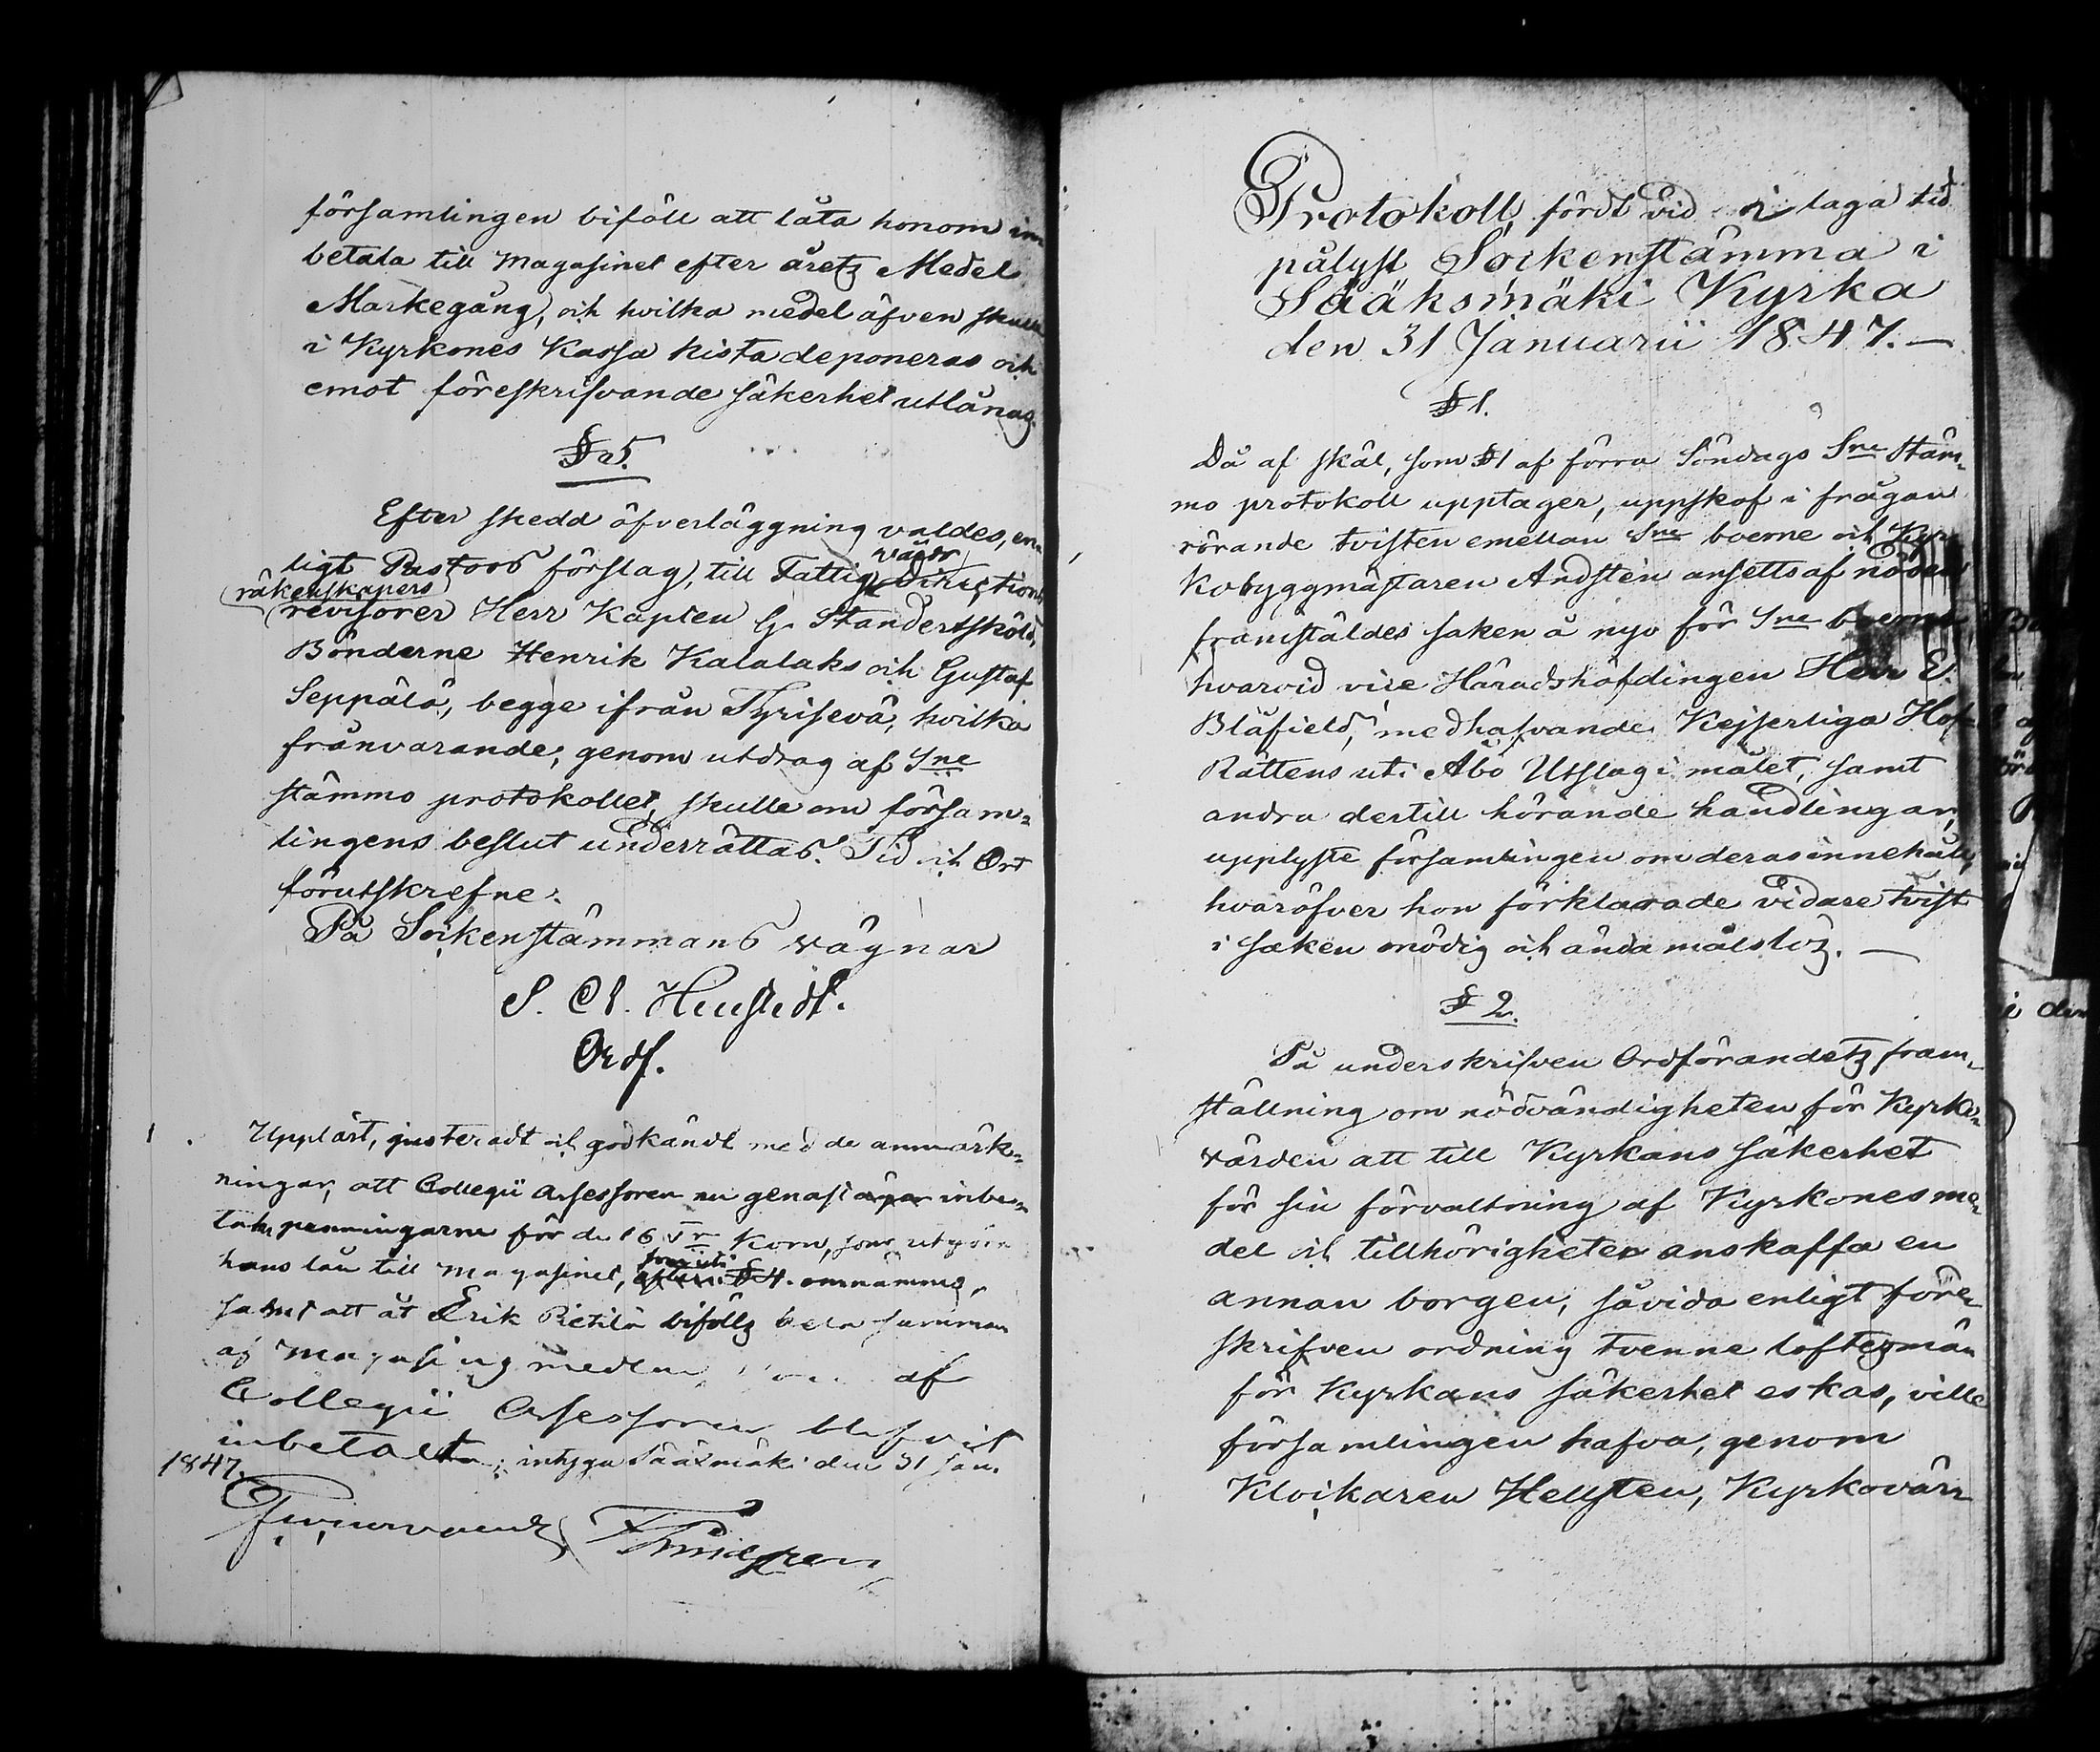 församlingen bifall att låta honom in
betala till Magasinet efter åretz Medel
Markegång, och hvilka medel äfven skulle
i Kyrkones Kassa kista deponeras och
emot föreskrifvande säkerhet utlånas.
§ 5.
Efter skedd öfverläggning valdes, en-
ligt Pastors förslag, till Fattigvårds Directions
räkenskapers
revisorer Herr Kapten G. Standertsköld,
Bönderne Henrik Kalalaks och Gustaf
Seppälä, begge ifrån Tyrisevä, hvilka
frånvarande, genom utdrag af Sne
stämmo protokollet, skulle om försam-
lingens beslut underrättas. Tid och Ort
förutskrefne.
På Sockenstämmans vägnar
S. A. Heustedt.
Ordf.
Uppläst, justeradt och godkändt med de anmärk-
ningar, att Collegii Assessoren nu genast inbe-
talte penningarne för de 16 Tr Korn, som utgöra
hans lån till Magasinet, som uti § 4. omnämnes,
samt att åt Erik Pietilä bifölls hela summan
af Magasins medlen, som af
Collegii Assessoren blifvit
inbetalt; intyga Sääxmäki den 31 Jan.
1847.
Protokoll, fördt vid i laga tid
pålyst Sockenstämma i
Sääksmäki Kyrka
den 31 Januarii 1847. —
§ 1.
Då af skäl, som § 1 af förra Söndags Sne Stäm-
mo protokoll upptager, uppskof i frågan
rörande tvisten emellan Sne boerne och Kyr-
kobyggmästaren Andsten ansetts af nöden
framstäldes saken å nyo för Sne boerne,
hvarvid vice Häradshöfdingen Herr E.
Blåfield, medhafvande Kejserliga Hof
Rättens uti Åbo Utslag i målet, samt
andra dertill hörande handlingar,
upplyste församlingen om deras innehåll,
hvaröfver hon förklarade vidare tvist
i saken onödig och ändamålslös. —
§ 2.
På underskrifven Ordförandetz fram-
ställning om nödvändigheten för Kyrko-
värden att till Kyrkans säkerhet
för sin förvaltning af Kyrkones me-
del och tillhörigheter anskaffa en
annan borgen, såvida enligt före-
skrifven ordning tvenne löftesmän
för Kyrkans säkerhet eskas, ville
församlingen hafva, genom
Klockaren Hellsten, Kyrkovär-